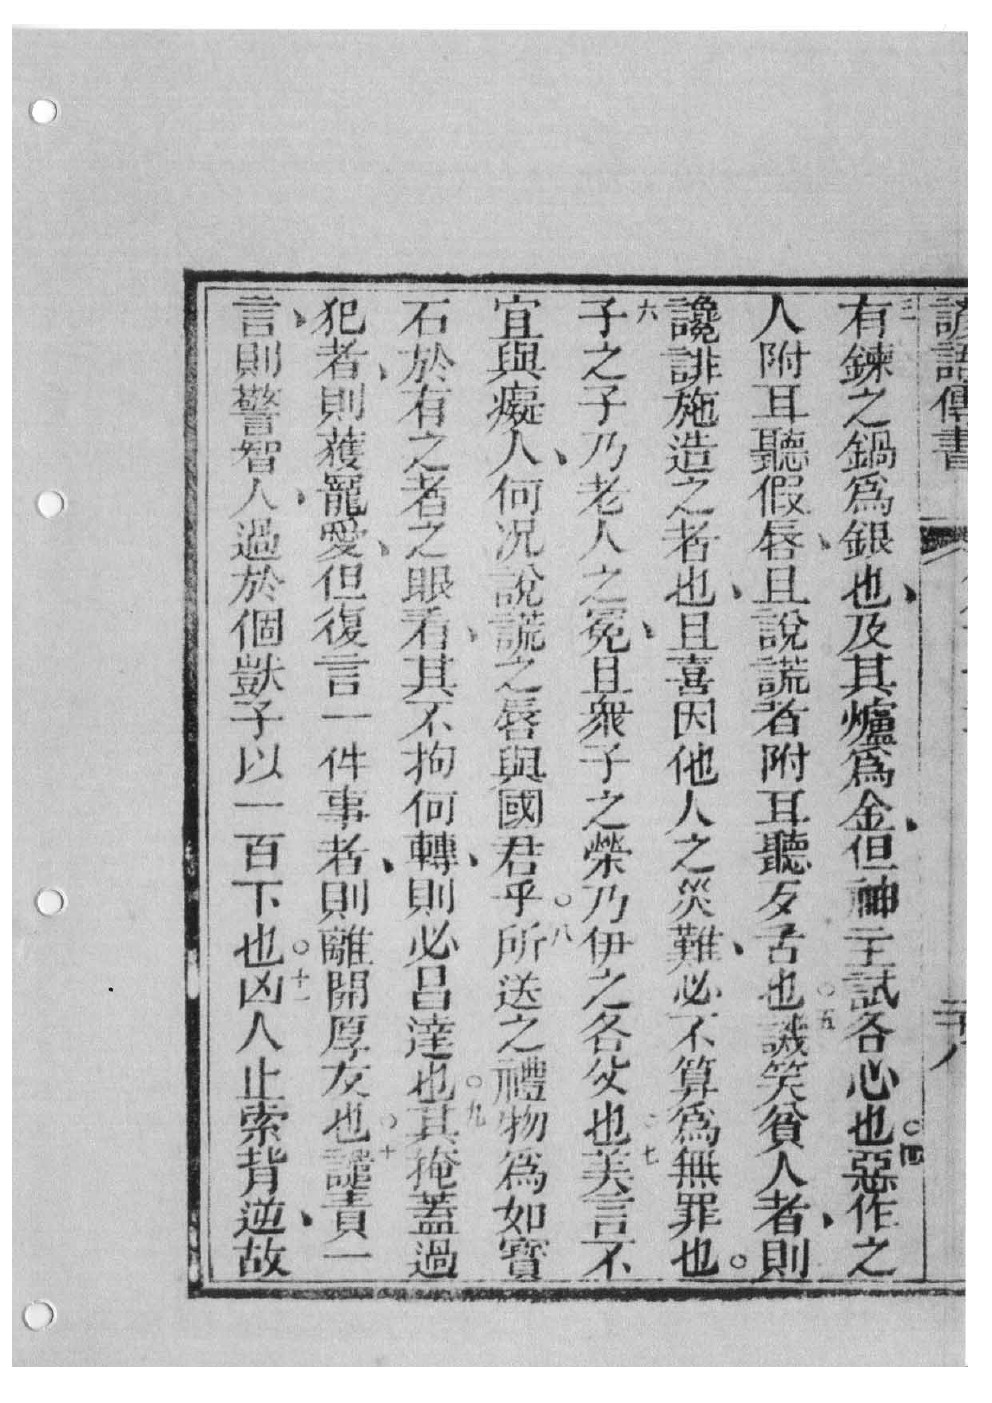 諺語傳書
二十八
三有鍊之鍋爲銀也、及其爐爲金、但神主試各心也。四惡作之
人附耳聽假唇、且說謊者附耳聽歹舌也。五譏笑貧人者、則
讒誹施造之者也、且喜因他人之災難、必不算爲無罪也。
六子之子乃老人之冕、且衆子之榮乃伊之各父也。七美言不
宜與癡人、何况說謊之唇與國君乎。八所送之禮物爲如寶
石於有之者之眼看、其不拘何轉、則必呂達也。九其掩蓋過
犯者、則獲寵愛、但復言一件事者、則離開厚友也。十譴責一
言、則警智人、過於個獃子以一百下也。十一凶人止索背逆、故